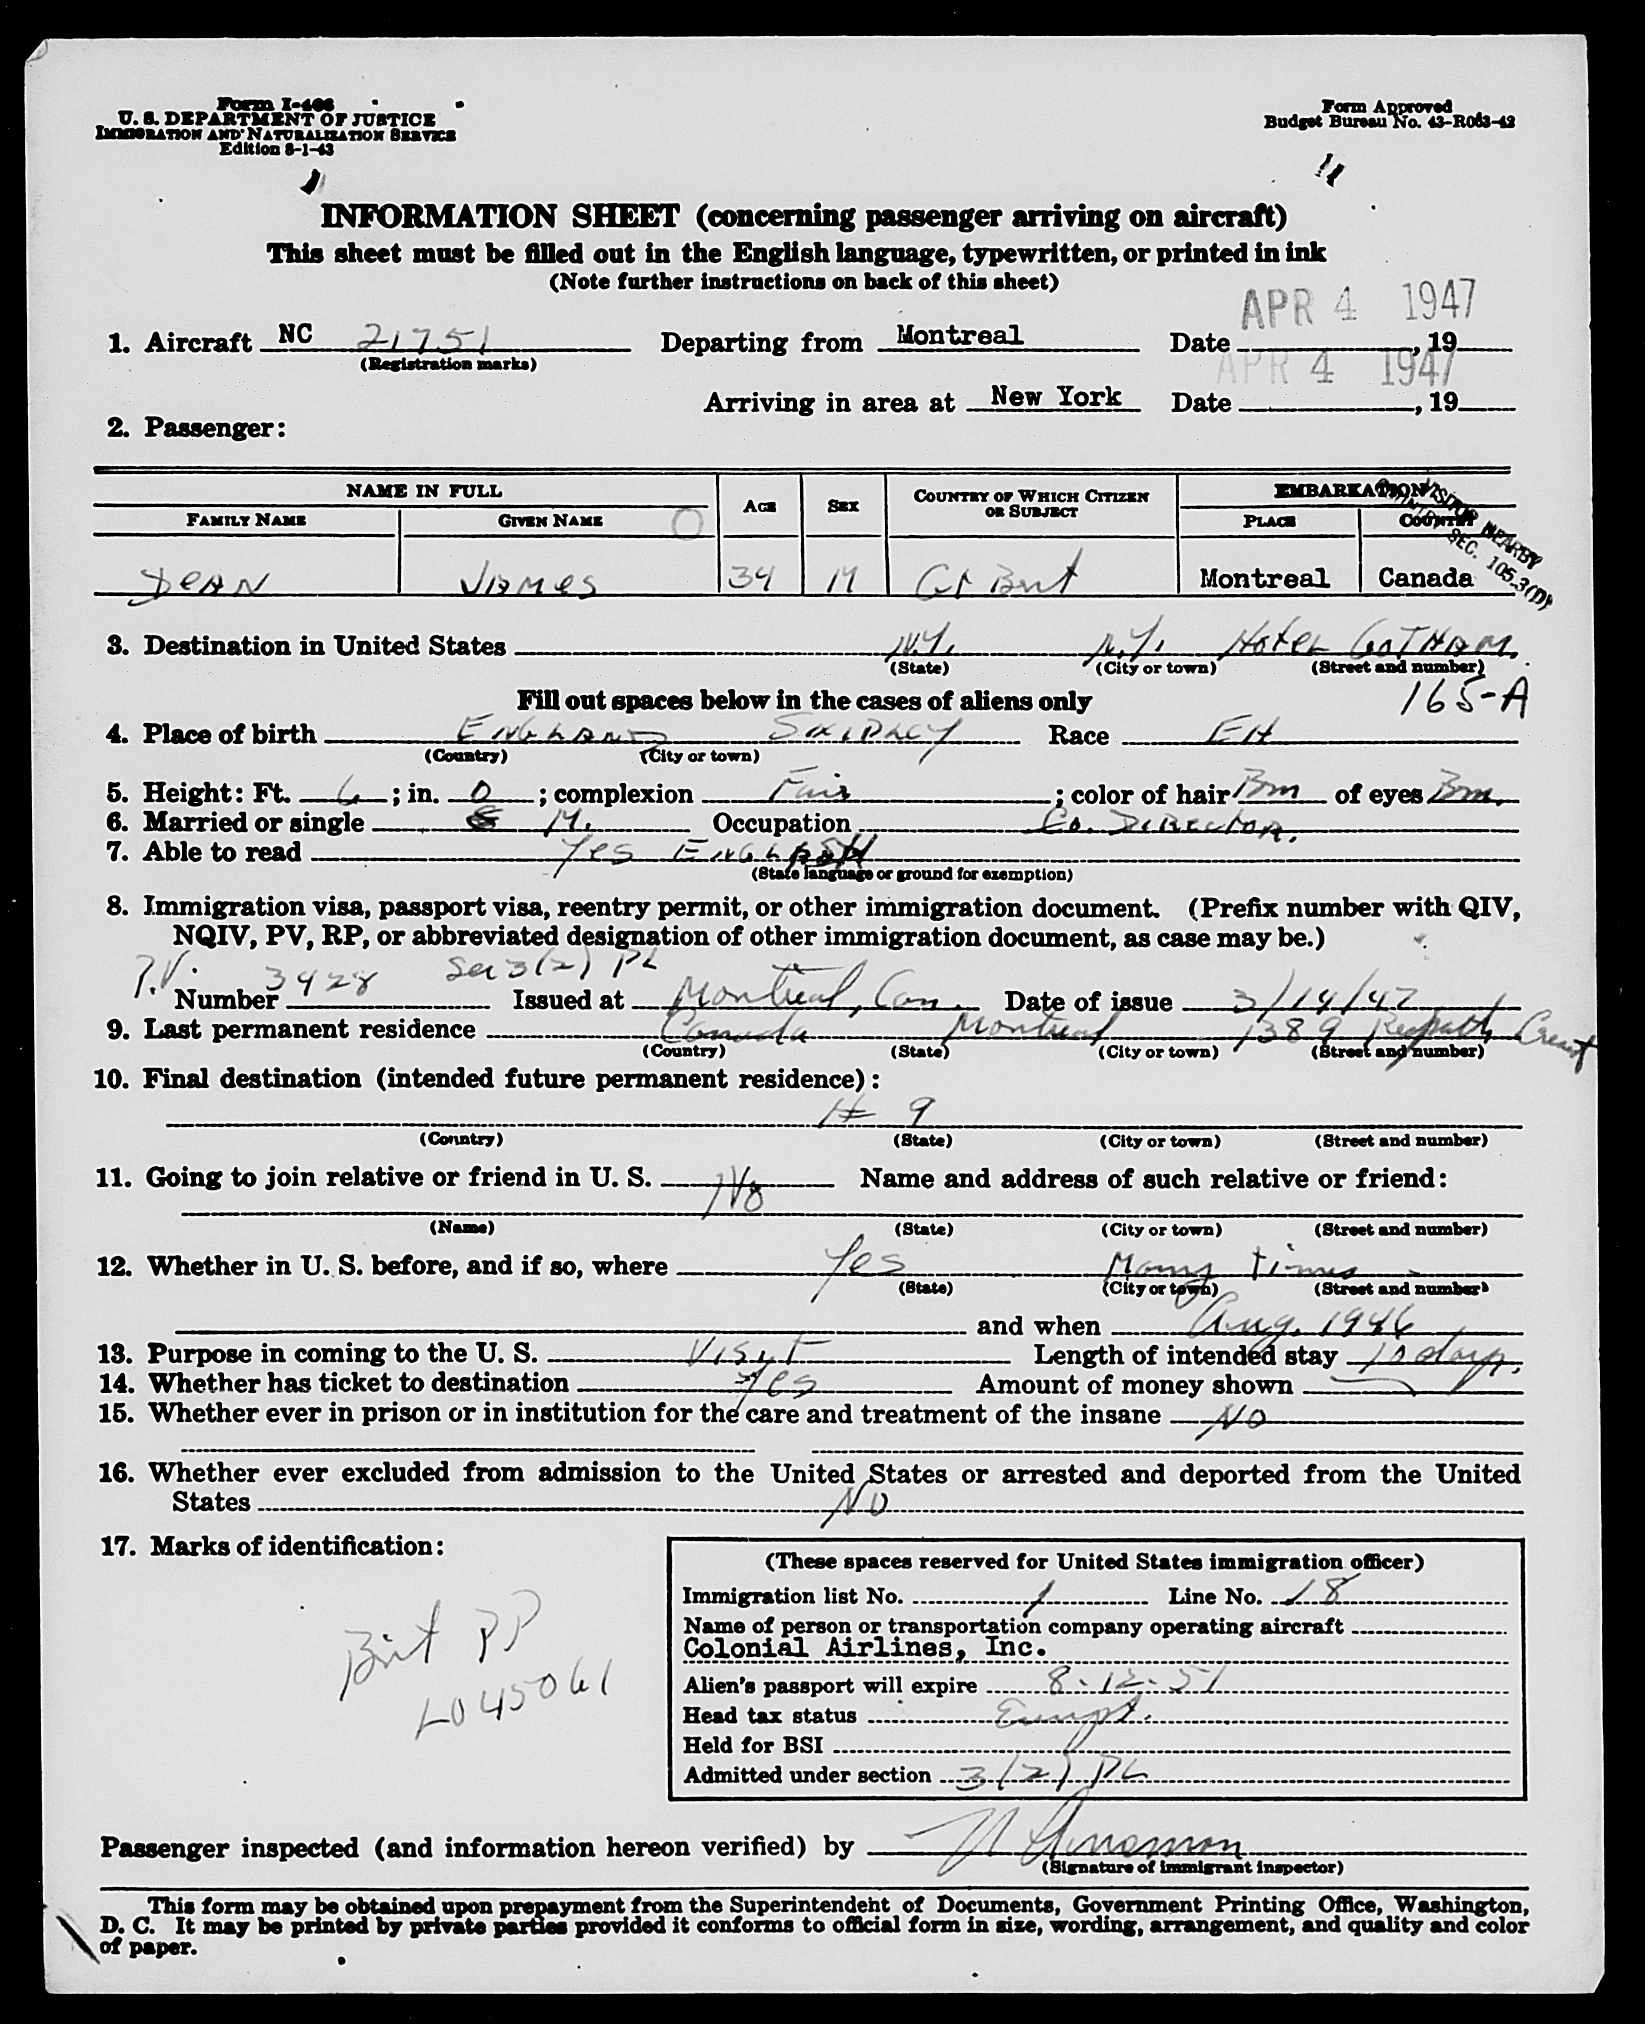 Form I-466
U. S. DEPARTMENT OF JUSTICE
IMMIGRATION AND NATURALIZATION SERVICE
Edition 8-1-43
Form Approved
Budget Bureau No. 43-R063-42
INFORMATION SHEET (concerning passenger arriving on aircraft)
This sheet must be filled out in the English language, typewritten, or printed in ink
(Note further instructions on back of this sheet)
APR 4 1947
1. Aircraft NC 21751 Departing from Montreal Date , 19
(Registration marks)
APR 4 1947
Arriving in area at New York Date , 19
2. Passenger:
NAME IN FULL AGE SEX COUNTRY OF WHICH CITIZEN OR SUBJECT EMBARKATION
FAMILY NAME GIVEN NAME PLACE COUNTRY
VISITOR NEARBY
SEC. 105.3(D)
DEAN JAMES 34 M Gt Brit Montreal Canada
3. Destination in United States N.Y. N.Y. HOTEL GOTHAM.
(State) (City or town) (Street and number)
Fill out spaces below in the cases of aliens only 165-A
4. Place of birth ENGLAND Race EH
(Country) (City or town)
5. Height: Ft. 6 ; in. 0 ; complexion Fair ; color of hair Brn of eyes Brn.
6. Married or single M. Occupation Co. DIRECTOR.
7. Able to read Yes ENGLISH
(State language or ground for exemption)
8. Immigration visa, passport visa, reentry permit, or other immigration document. (Prefix number with QIV,
NQIV, PV, RP, or abbreviated designation of other immigration document, as case may be.)
P.V. Sec 3(2) PL
Number 3428 Issued at Montreal, Can. Date of issue 3/14/47
9. Last permanent residence Canada Montreal 1389 Redpath Crescent
(Country) (State) (City or town) (Street and number)
10. Final destination (intended future permanent residence):
# 9
(Country) (State) (City or town) (Street and number)
11. Going to join relative or friend in U. S. No Name and address of such relative or friend:
(Name) (State) (City or town) (Street and number)
12. Whether in U. S. before, and if so, where Yes Many times
(State) (City or town) (Street and number)
and when Aug. 1946
13. Purpose in coming to the U. S. Visit Length of intended stay 10 days.
14. Whether has ticket to destination Yes Amount of money shown
15. Whether ever in prison or in institution for the care and treatment of the insane NO
16. Whether ever excluded from admission to the United States or arrested and deported from the United
States NO
17. Marks of identification:
Brit PP
L045061
(These spaces reserved for United States immigration officer)
Immigration list No. 1 Line No. 18
Name of person or transportation company operating aircraft
Colonial Airlines, Inc.
Alien's passport will expire 8-12-51
Head tax status Exempt.
Held for BSI
Admitted under section 3(2) PL
Passenger inspected (and information hereon verified) by
(Signature of immigrant inspector)
This form may be obtained upon prepayment from the Superintendent of Documents, Government Printing Office, Washington,
D. C. It may be printed by private parties provided it conforms to official form in size, wording, arrangement, and quality and color
of paper.